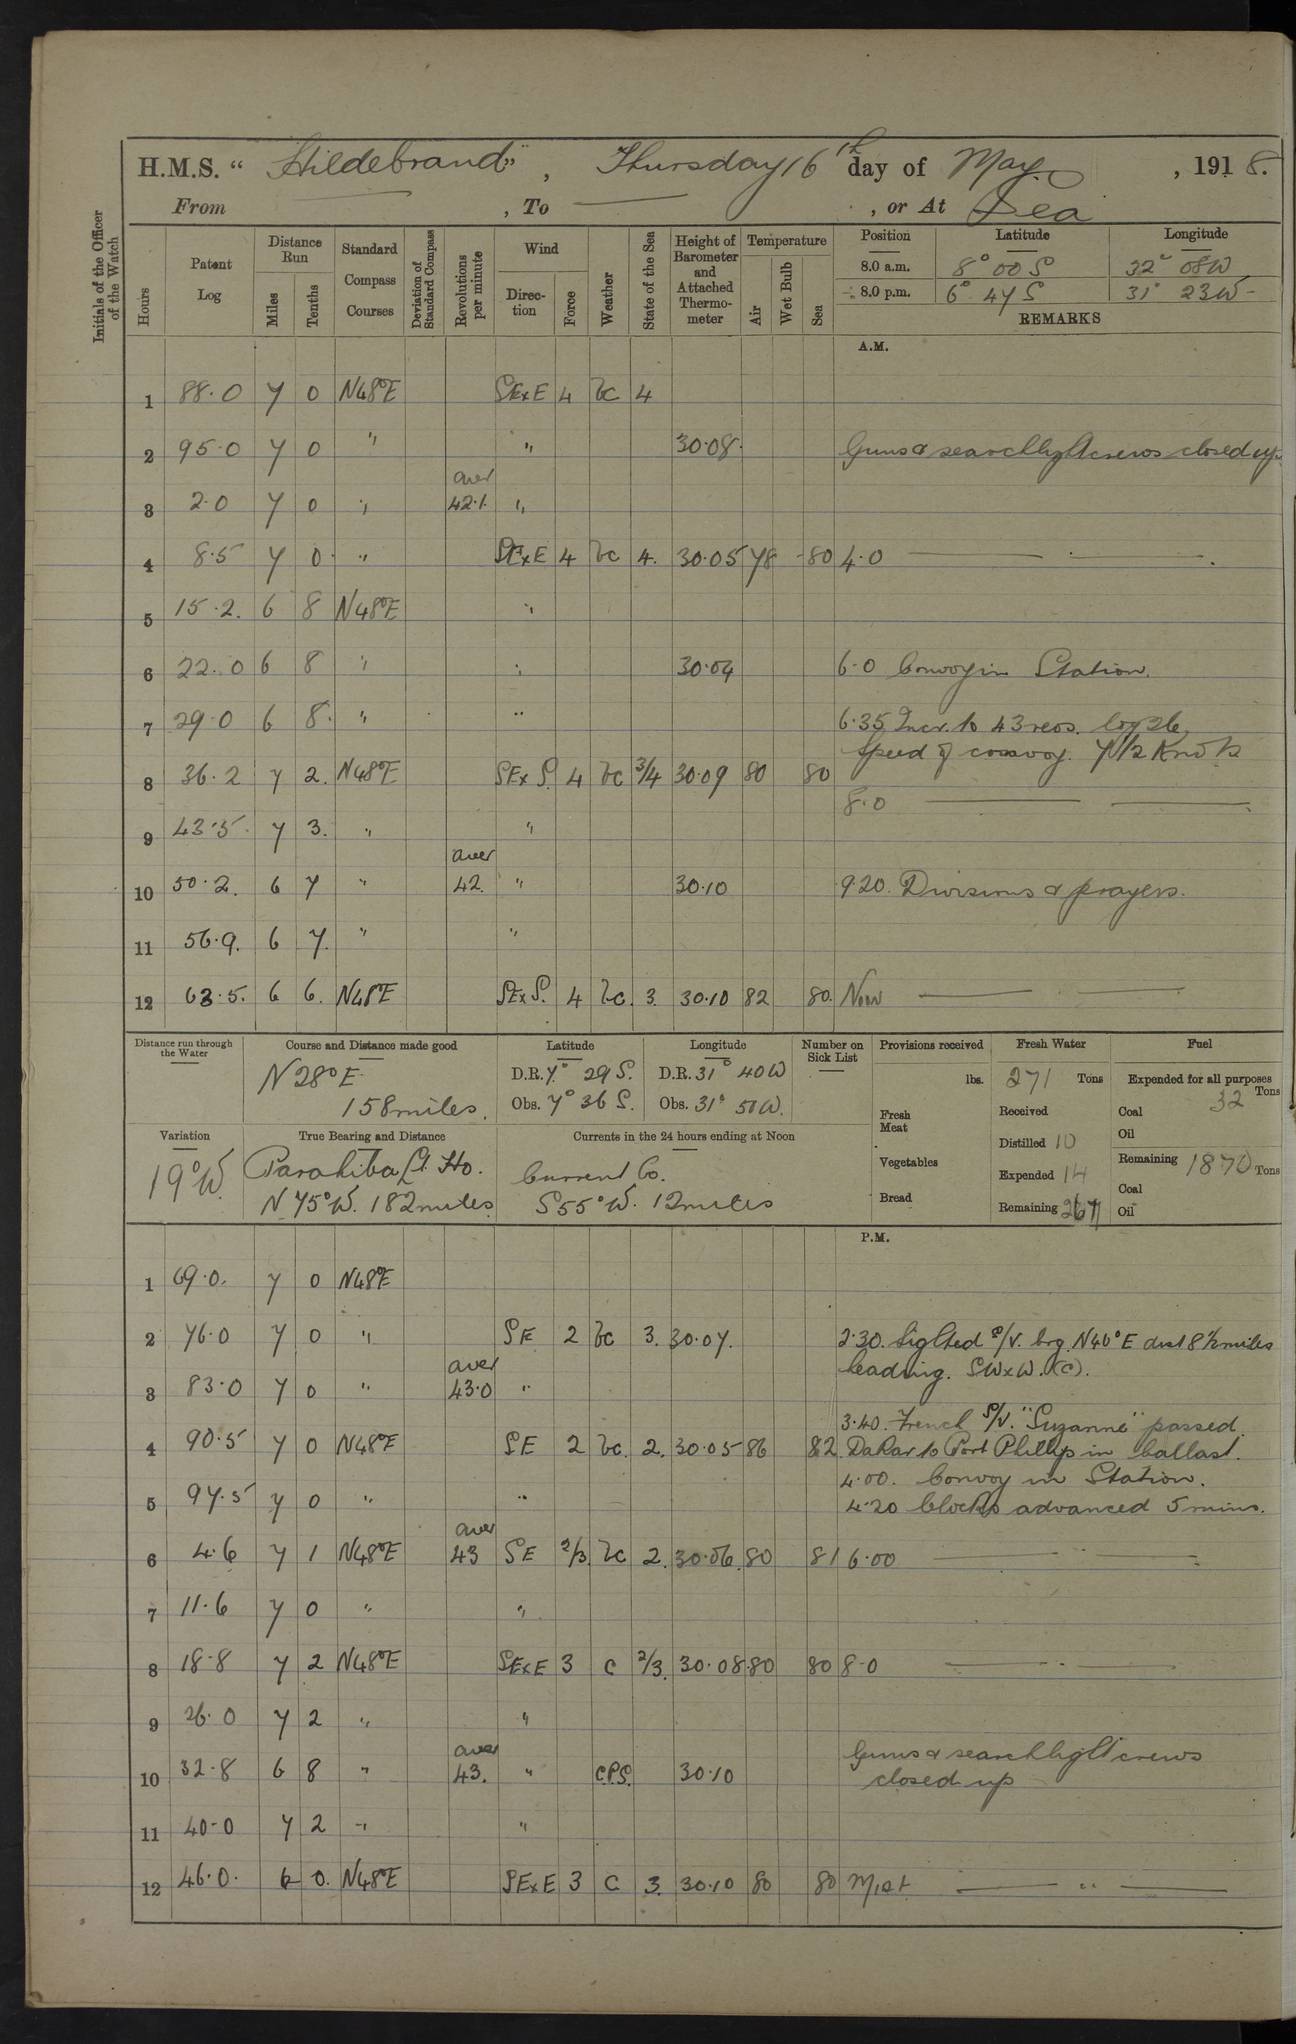 H.M.S. “ Hildebrand” , Thursday 16th day of May , 1918.
From — , To — , or At Sea
Initials of the Officer of the Watch
Hours Patent Log Distance Run Miles Tenths Standard Compass Courses Deviation of Standard Compass Revolutions per minute Wind Direction Force Weather State of the Sea Height of Barometer and Attached Thermometer Temperature Air Wet Bulb Sea
Position Latitude Longitude
8.0 a.m. 8° 00 S 32° 08 W
8.0 p.m. 6° 47 S 31° 23 W
REMARKS
A.M.
1 88.0 7 0 N48°E SExE 4 bc 4
2 95.0 7 0 " " 30.08 Guns & searchlight crews closed up.
aver
3 2.0 7 0 " 42.1 "
4 8.5 7 0 " SExE 4 bc 4 30.05 78 80 4.0 — " —
5 15.2 6 8 N48°E "
6 22.0 6 8 " " 30.04 6.0 Convoy in Station.
7 29.0 6 8 " " 6.35 Incr. to 43 revs. log 26
Speed of convoy. 7 1/2 Knots
8 36.2 7 2 N48°E SExS 4 bc 3/4 30.09 80 80
8.0 — —
9 43.5 7 3 " "
aver
10 50.2 6 7 " 42 " 30.10 9.20. Divisions & prayers.
11 56.9 6 7 " "
12 63.5 6 6 N48°E SExS 4 bc 3 30.10 82 80 Noon — " —
Distance run through the Water
Course and Distance made good
N 28° E
158 miles.
Latitude
D.R. 7° 29 S.
Obs. 7° 36 S.
Longitude
D.R. 31° 40 W
Obs. 31° 50 W.
Number on Sick List
Provisions received
lbs.
Fresh Meat
Vegetables
Bread
Fresh Water
271 Tons
Received
Distilled 10
Expended 14
Remaining 267
Fuel
Expended for all purposes
Coal 32 Tons
Oil
Remaining 1870 Tons
Coal
Oil
Variation
19° W.
True Bearing and Distance
Parahiba Lt. Ho.
N 75° W. 182 miles
Currents in the 24 hours ending at Noon
Current Co.
S 55° W. 12 miles
P.M.
1 69.0 7 0 N48°E
2 76.0 7 0 " SE 2 bc 3 30.07 2.30. Sighted S/V. brg. N40°E dist 8 1/2 miles
heading. SWxW. (C).
aver
3 83.0 7 0 " 43.0 "
3.40. French S/V. "Suzanne" passed.
4 90.5 7 0 N48°E SE 2 bc 2 30.05 86 82 Dakar to Port Phillip in ballast.
4.00. Convoy in Station.
5 97.5 7 0 " " 4.20 Clocks advanced 5 mins.
aver
6 4.6 7 1 N48°E 43 SE 2/3 bc 2 30.06 80 81 6.00 — —
7 11.6 7 0 " "
8 18.8 7 2 N48°E SExE 3 c 2/3 30.08 80 80 8.0 — " —
9 26.0 7 2 " "
aver
10 32.8 6 8 " 43 " C.P.S. 30.10 Guns & searchlight crews
closed up
11 40.0 7 2 " "
12 46.0 6 0 N48°E SExE 3 c 3 30.10 80 80 Mist — " —